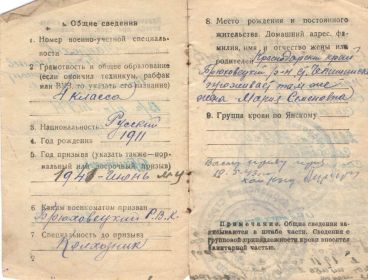 I. Общие сведения
1. Номер военно-учетной специаль-
ности
2. Грамотность и общее образование
(если окончил техникум, рабфак
или ВУЗ, то указать его название)
4 класса
3. Национальность Русский
4. Год рождения 1911
5. Год призыва (указать также—нор-
мальный или досрочный призыв)
1941 июнь
6. Каким военкоматом призван
Брюховецкий Р.В.К.
7. Специальность до призыва
Колхозник
8. Место рождения и постоянного
жительства. Домашний адрес, фа-
милия, имя и отчество жены или
родителей Краснодарский край
Брюховецкий р-н
проживает там же
жена Мария Семеновна
9. Группа крови по Янскому
Примечание. Общие сведения за-
писываются в штабе части. Сведения о
групповой принадлежности крови вносятся
санитарной частью.